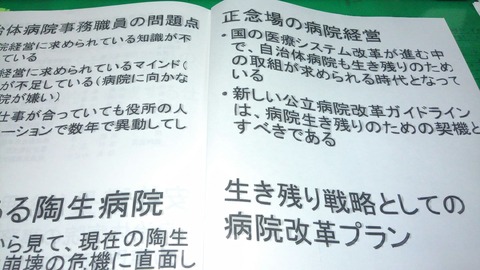 治体病院事務職員の問題点
院経営に求められている知識が不
ている
経営に求められているマインド(
が不足している(病院に向かな
院が嫌い)
仕事が合っていても役所の人
ーションで数年で異動してし
ある陶生病院
から見て、現在の陶生
崩壊の危機に直面し
正念場の病院経営
・国の医療システム改革が進む中
で、自治体病院も生き残りのため
の取組が求められる時代となって
いる
・新しい公立病院改革ガイドライン
は、病院生き残りのための契機と
すべきである
生き残り戦略としての
病院改革プラン